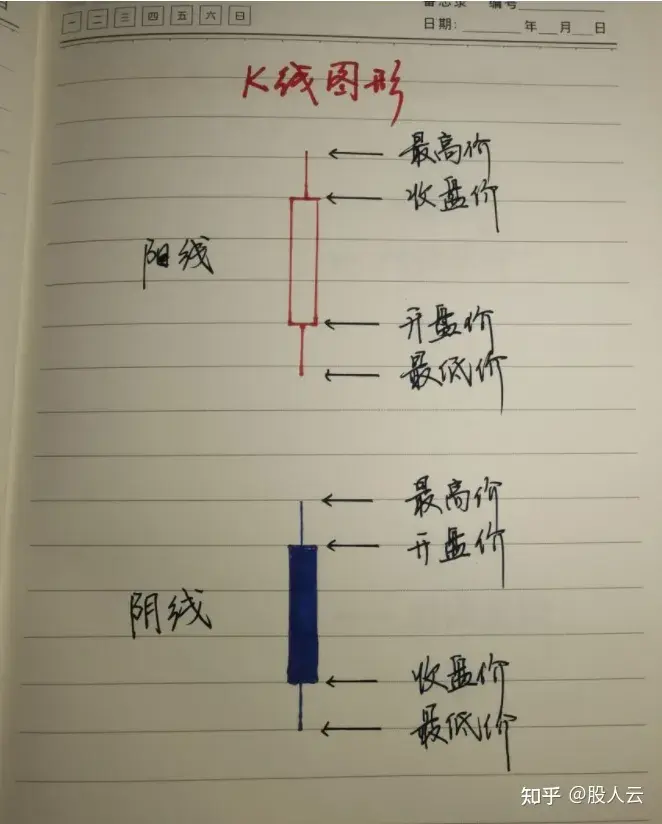 一 二 三 四 五 六 日
备忘录 编号
日期: 年 月 日
K线图形
最高价
收盘价
阳线
开盘价
最低价
最高价
开盘价
阴线
收盘价
最低价
知乎 @股人云